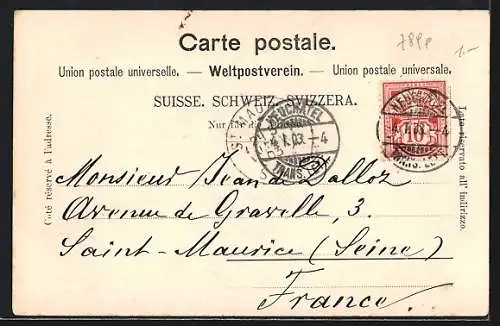 Carte postale.
Union postale universelle. — Weltpostverein. — Unione postale universale.
SUISSE. SCHWEIZ. SVIZZERA.
Nur für die
NEUCHATEL
4.I.03.–4
TRANS.
NEUCHATEL
4.I.03.–4
10
Côté réservé à l'adresse.
Lato riservato all' indirizzo.
Monsieur Jean de Dalloz
Avenue de Gravelle, 3.
Saint-Maurice (Seine)
France.